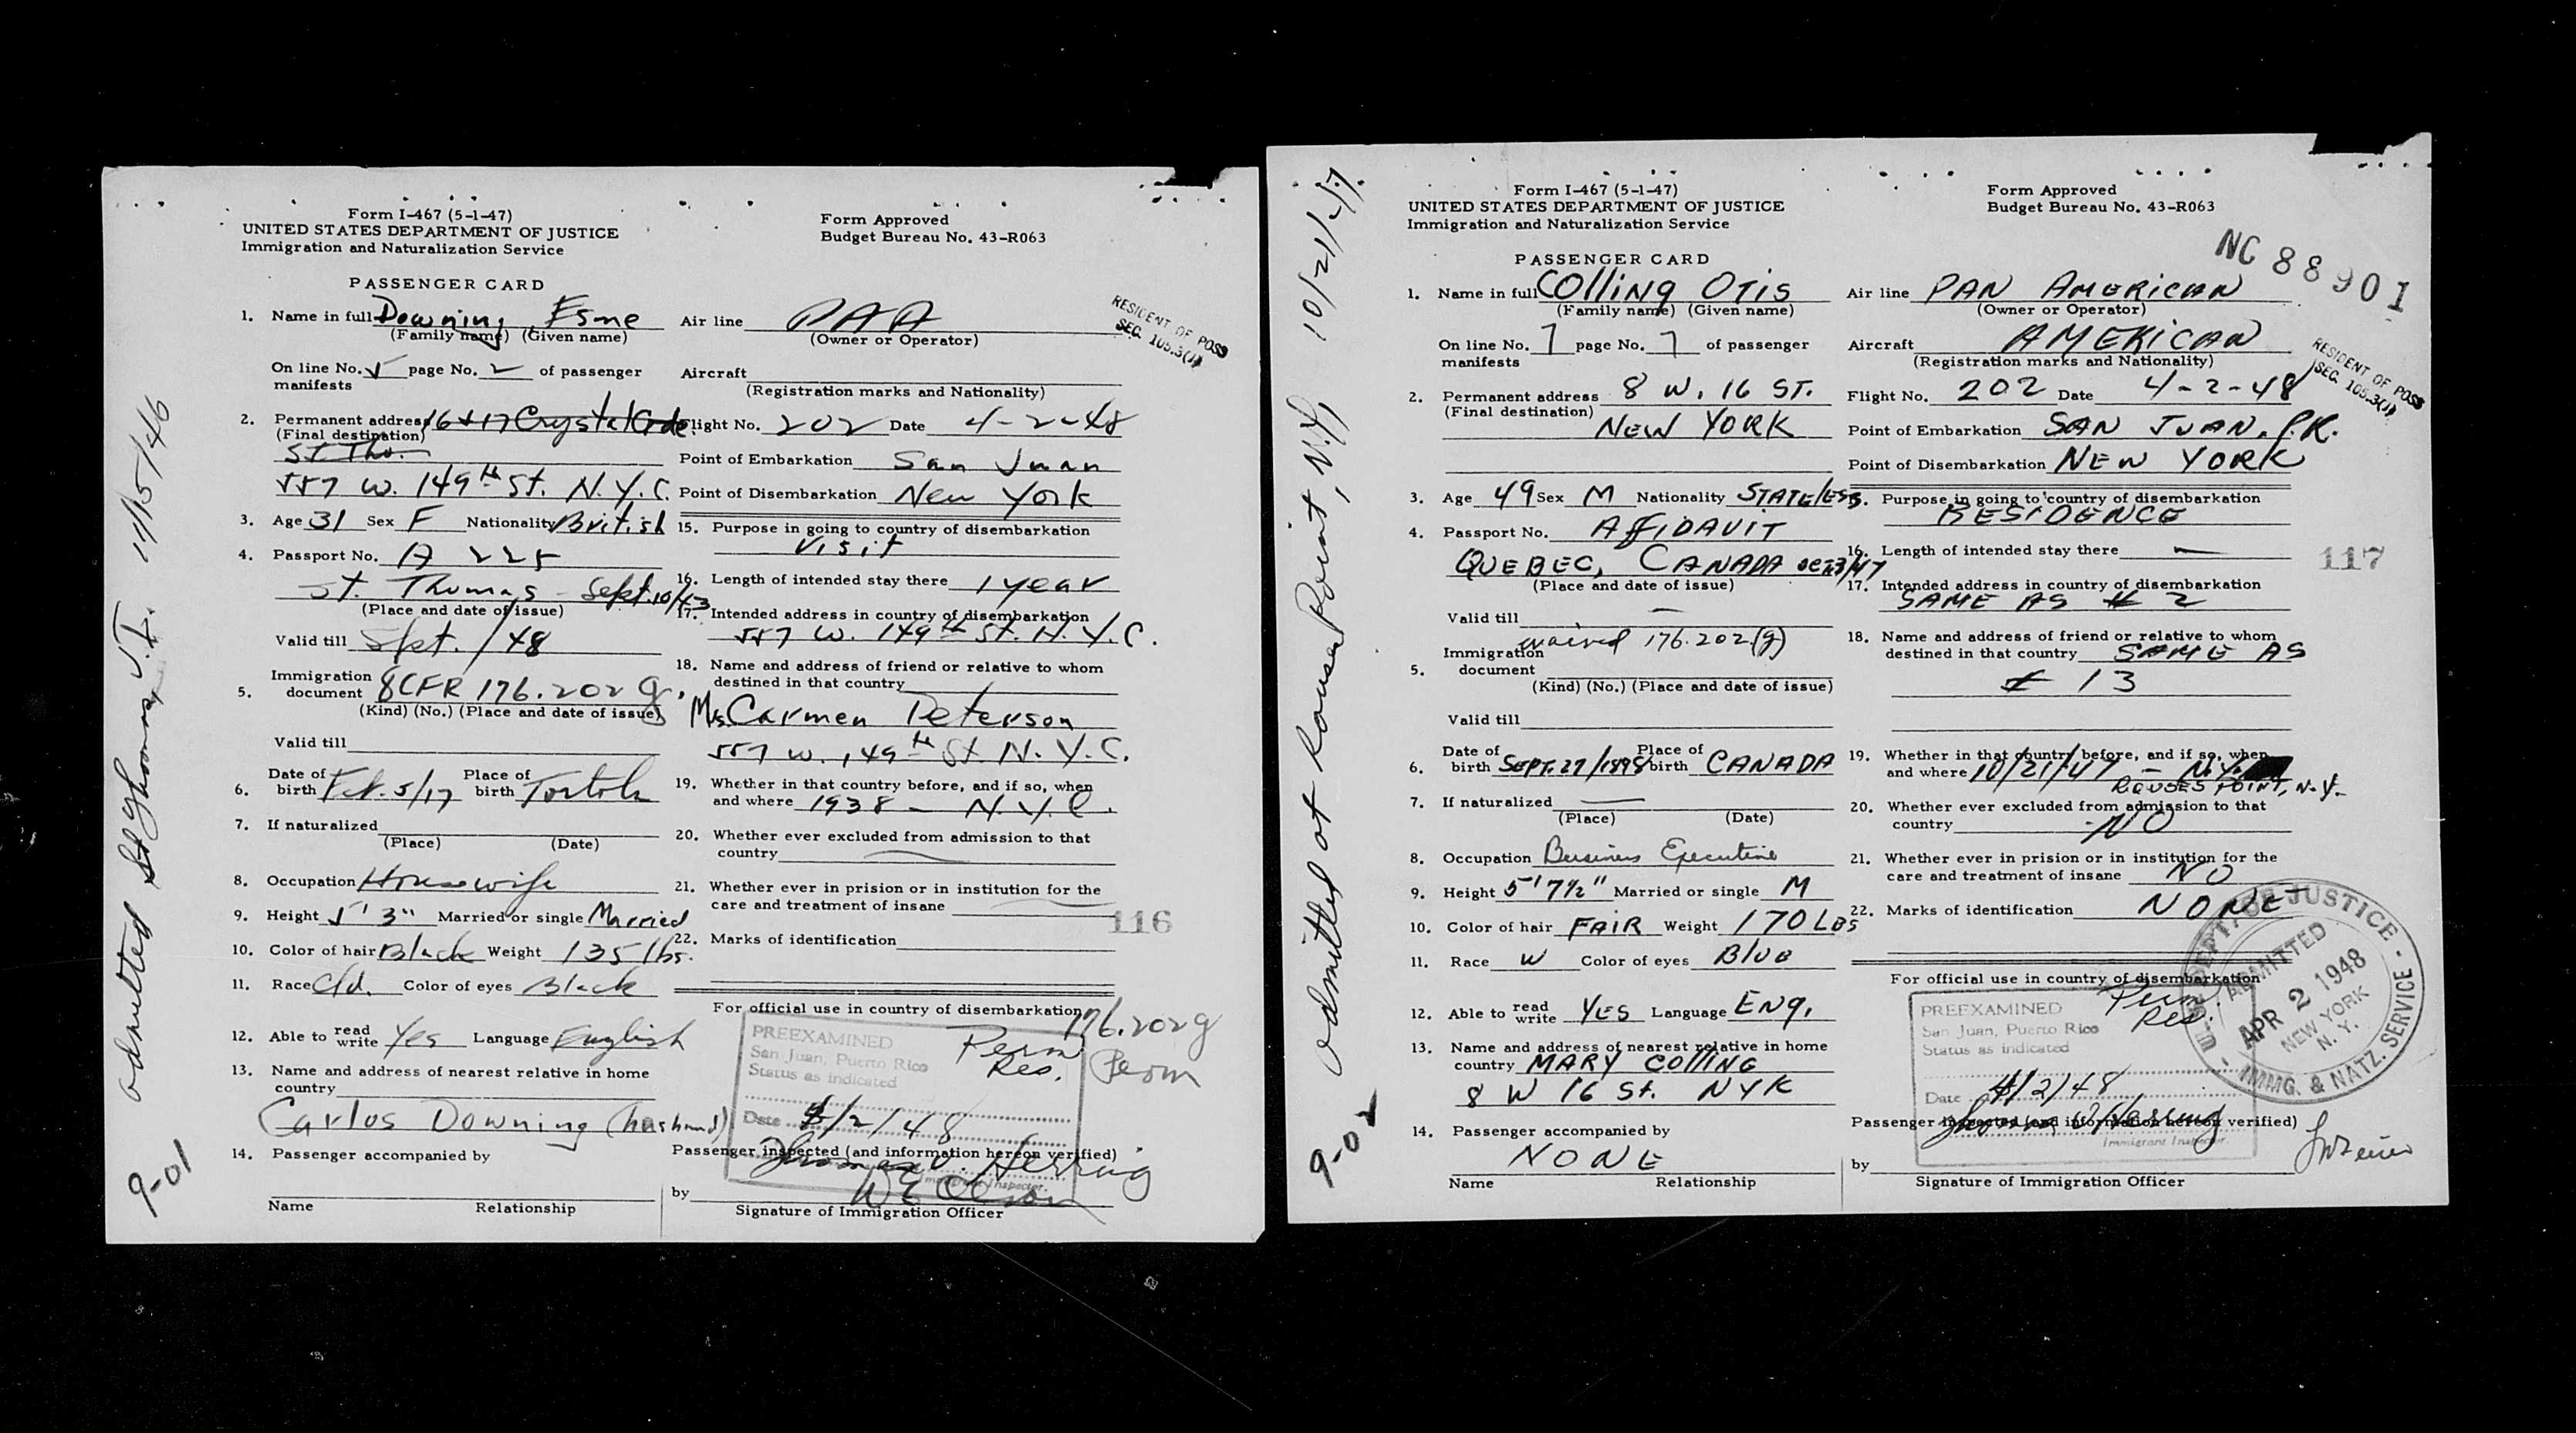 Form I-467 (5-1-47)
UNITED STATES DEPARTMENT OF JUSTICE
Immigration and Naturalization Service
Form Approved
Budget Bureau No. 43-R063
PASSENGER CARD
RESIDENT OF POSS
SEC. 105.3(J)
1. Name in full Downing Esme
(Family name) (Given name)
On line No. 5 page No. 2 of passenger
manifests
2. Permanent address 16+17 Crystal Gade
(Final destination)
St Tho.
557 W. 149th St. N.Y.C.
3. Age 31 Sex F Nationality British
4. Passport No. A 225
St. Thomas - Sept. 10/43
(Place and date of issue)
Valid till Sept. / 48
5. Immigration document 8CFR 176.202 g.
(Kind) (No.) (Place and date of issue)
Valid till
6. Date of birth Feb. 5/17 Place of birth Tortola
7. If naturalized
(Place) (Date)
8. Occupation Housewife
9. Height 5' 3" Married or single Married
10. Color of hair Black Weight 135 lbs.
11. Race Cld. Color of eyes Black
12. Able to read write Yes Language English
13. Name and address of nearest relative in home
country
Carlos Downing (husband)
14. Passenger accompanied by
Name Relationship
Air line PAA
(Owner or Operator)
Aircraft
(Registration marks and Nationality)
Flight No. 202 Date 4-2-48
Point of Embarkation San Juan
Point of Disembarkation New York
15. Purpose in going to country of disembarkation
Visit
16. Length of intended stay there 1 year
17. Intended address in country of disembarkation
557 W. 149th St. N.Y.C.
18. Name and address of friend or relative to whom
destined in that country
Mrs. Carmen Peterson
557 W. 149th St N.Y.C.
19. Whether in that country before, and if so, when
and where 1938 - N.Y.C.
20. Whether ever excluded from admission to that
country
21. Whether ever in prision or in institution for the
care and treatment of insane
116
22. Marks of identification
For official use in country of disembarkation
176.202g
Perm
PREEXAMINED
San Juan, Puerto Rico
Status as indicated
Perm Res.
Date 4/2/48
Passenger inspected (and information hereon verified)
Thomas W. Herring
Immigrant Inspector.
by W E Olson
Signature of Immigration Officer
admitted St Thomas, V.I. 11/15/46
9-01
Form I-467 (5-1-47)
UNITED STATES DEPARTMENT OF JUSTICE
Immigration and Naturalization Service
Form Approved
Budget Bureau No. 43-R063
NC 88901
PASSENGER CARD
RESIDENT OF POSS
SEC. 105.3(J)
1. Name in full Colling Otis
(Family name) (Given name)
On line No. 7 page No. 7 of passenger
manifests
2. Permanent address 8 W. 16 ST.
(Final destination)
NEW YORK
3. Age 49 Sex M Nationality STATELESS
4. Passport No. AFFIDAVIT
QUEBEC, CANADA OCT 3/47
(Place and date of issue)
Valid till —
waived 176.202(g)
5. Immigration document
(Kind) (No.) (Place and date of issue)
Valid till
6. Date of birth SEPT. 27/1898 Place of birth CANADA
7. If naturalized —
(Place) (Date)
8. Occupation Business Executive
9. Height 5' 7½" Married or single M
10. Color of hair FAIR Weight 170 LBS
11. Race W Color of eyes BLUE
12. Able to read write YES Language ENG.
13. Name and address of nearest relative in home
country MARY COLLING
8 W 16 St. NYK
14. Passenger accompanied by
NONE
Name Relationship
Air line PAN AMERICAN
(Owner or Operator)
Aircraft AMERICAN
(Registration marks and Nationality)
Flight No. 202 Date 4-2-48
Point of Embarkation SAN JUAN. P.R.
Point of Disembarkation NEW YORK
Purpose in going to country of disembarkation
RESIDENCE
16. Length of intended stay there —
117
17. Intended address in country of disembarkation
SAME AS # 2
18. Name and address of friend or relative to whom
destined in that country SAME AS
# 13
19. Whether in that country before, and if so, when
and where 10/21/47 - N.Y.
ROUSES POINT, N.Y.
20. Whether ever excluded from admission to that
country NO
21. Whether ever in prision or in institution for the
care and treatment of insane NO
22. Marks of identification NONE
For official use in country of disembarkation
PREEXAMINED
San Juan, Puerto Rico
Status as indicated
Perm. Res.
Date 4/2/48
Passenger inspected (and information hereon verified)
Thomas W Herring
Immigrant Inspector.
by
Signature of Immigration Officer
U.S. DEPT. OF JUSTICE - IMMG. & NATZ. SERVICE -
ADMITTED
APR 2 1948
NEW YORK
N. Y.
admitted at Rouses Point, N.Y., 10/21/47.
9-02